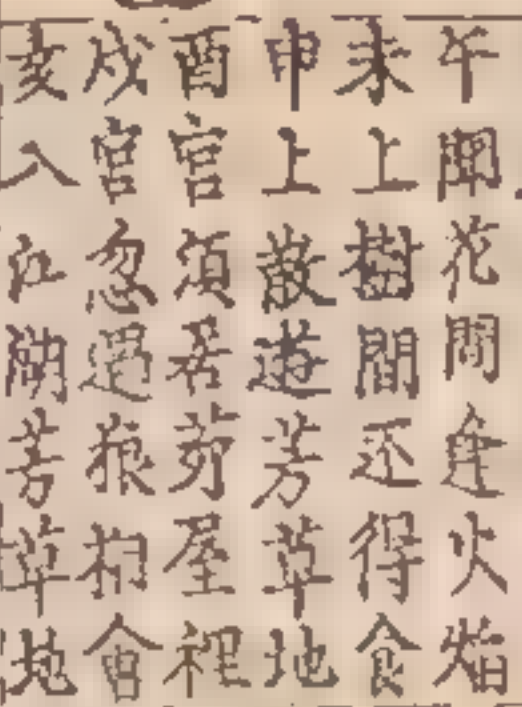 午聞花間逢火焰
未上樹間还得食
申上散遊芳草地
酉宮須居茆屋裡
戍宮忽遇狼狗會
亥入江湖芳草地